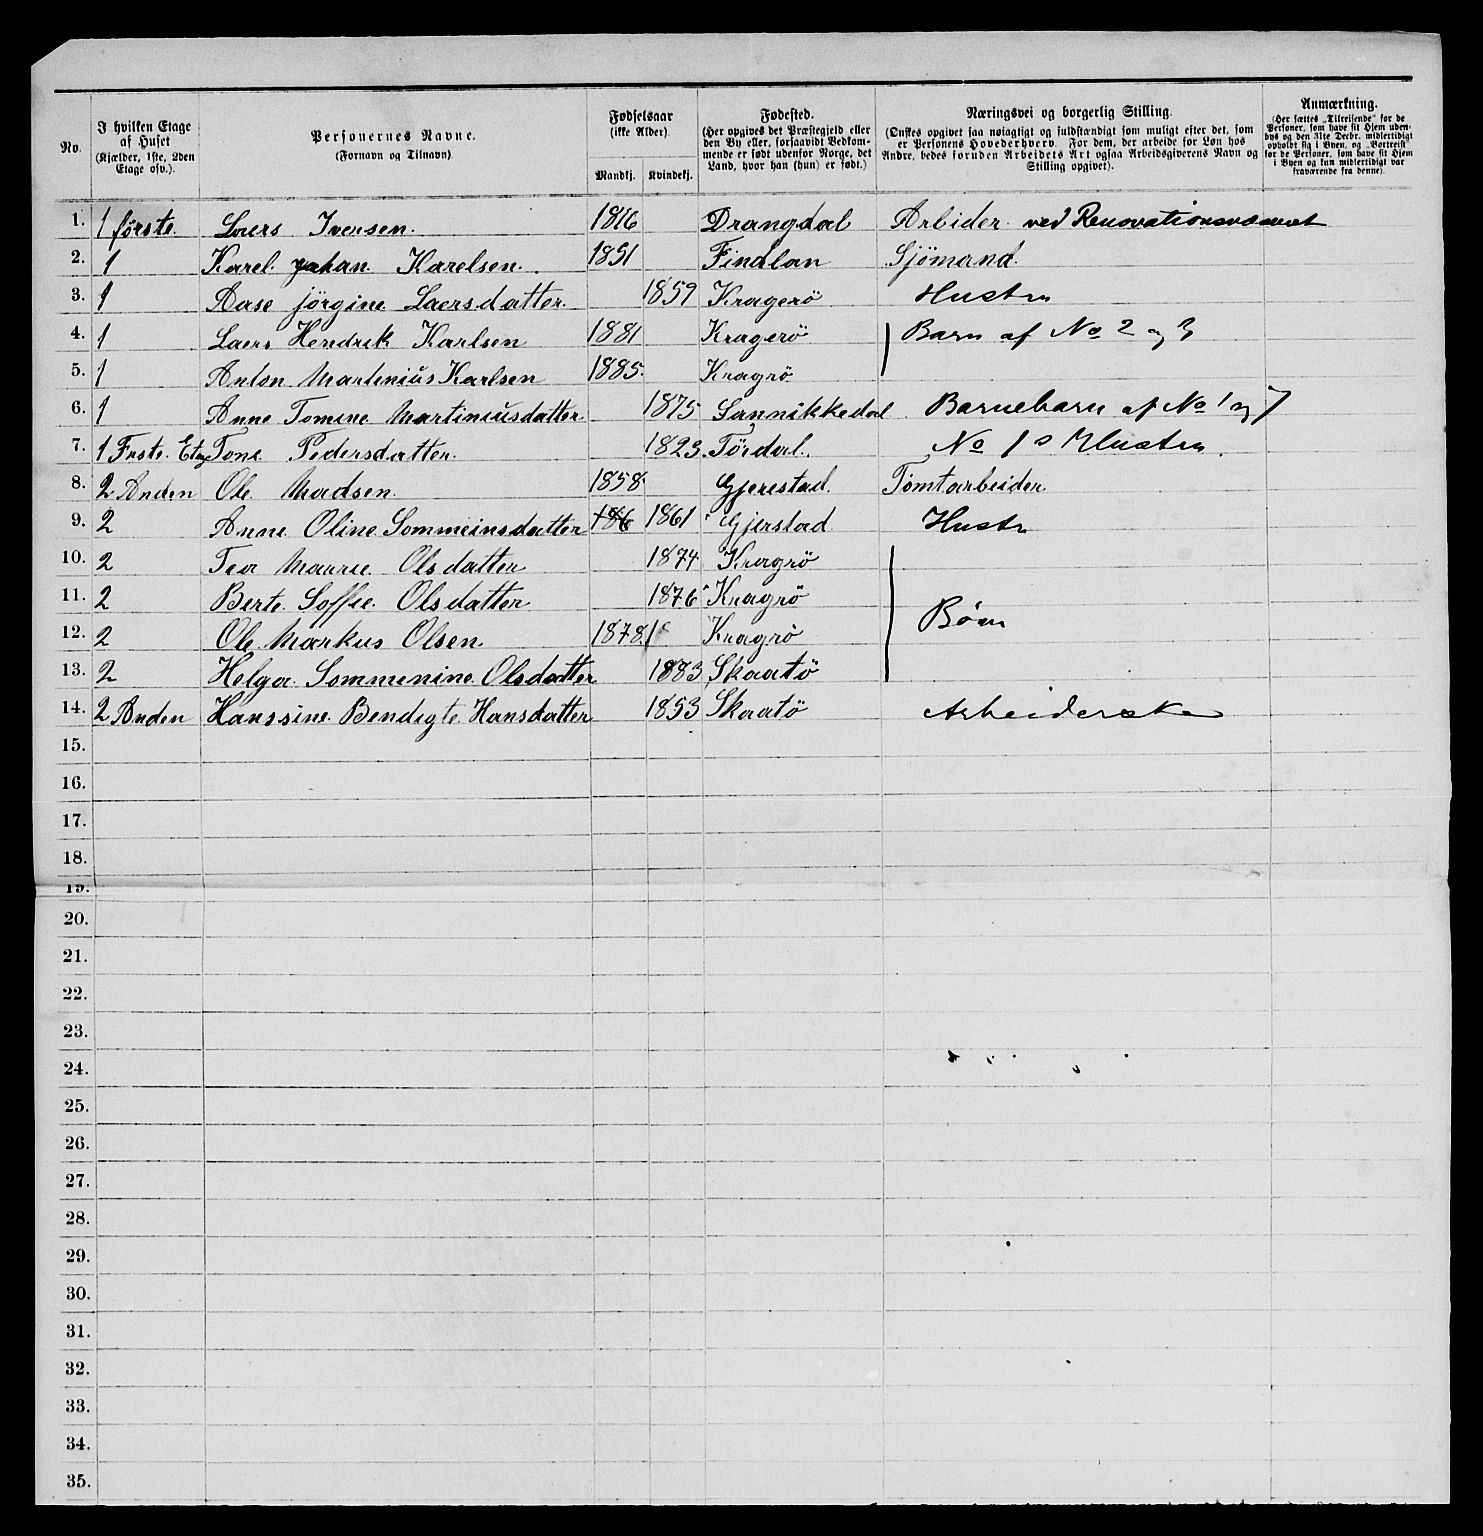 No.
I hvilken Etage
af Huset
(Kjælder, 1ste, 2den
Etage osv.).
Personernes Navne.
(Fornavn og Tilnavn)
Fødselsaar
(ikke Alder).
Mandkj.
Kvindekj.
Fødested.
(Her opgives det Præstegjeld eller
den By eller, forsaavidt Vedkom-
mende er født udenfor Norge, det
Land, hvor han (hun) er født.)
Næringsvei og borgerlig Stilling.
(Ønskes opgivet saa nøiagtigt og fuldstændigt som muligt efter det, som
er Personens Hovederhverv. For dem, der arbeide for Løn hos
Andre, bedes foruden Arbeidets Art ogsaa Arbeidsgiverens Navn og
Stilling opgivet).
Anmærkning.
(Her sættes „Tilreisende“ for de
Personer, som have sit Hjem uden-
bys og den 31te Decbr. midlertidigt
opholdt sig i Byen, og „Bortreist“
for de Personer, som have sit Hjem
i Byen og kun midlertidigt var
fraværende fra denne).
1. 1 förste. Laers Iversen. 1816 Drangdal Arbider ved Renovationsvæsenet
2. 1 Karel. Johan. Karelsen. 1851 Findlan Sjömand.
3. 1 Aase jörgine Laersdatter. 1859 Kragerö Hustru
4. 1 Laers Hendrik Karlsen 1881 Kragerö Barn af No 2 og 3
5. 1 Anton Martenius Karlsen 1885. Kragrö
6. 1 Anne Tomine Martiniusdatter 1875 Sannikkedal Barnebarn af No 1 og 7
7. 1 Frste. Etag Tone Pedersdatter. 1823. Tördal. No 1s Hustru.
8. 2 Anden Ole Madsen. 1858 Gjerestad. Tomtarbeider
9. 2 Anne Oline Sommeinsdatter 186 1861 Gjerstad Hustr
10. 2 Tea Maurie Olsdatter 1874. Kragrö
11. 2 Berte. Soffie. Olsdatter 1876 Kragrö
12. 2 Ole Markus Olsen 1878. Kragrö Börn
13. 2 Helga Sommenine Olsdatter 1883 Skaatö
14. 2 Anden Hanssine Bendigte Hansdatter 1853 Skaatö Arbeiderske
15.
16.
17.
18.
19.
20.
21.
22.
23.
24.
25.
26.
27.
28.
29.
30.
31.
32.
33.
34.
35.